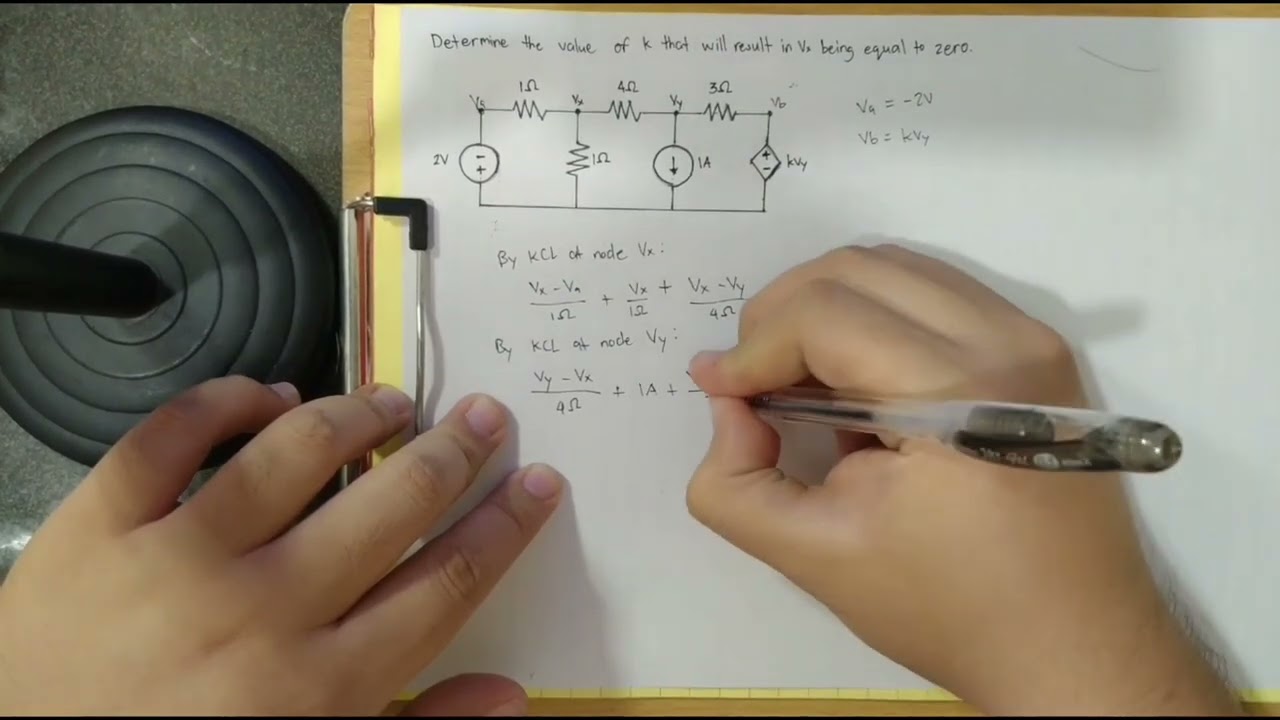 Determine the value of k that will result in Vx being equal to zero.
1Ω 4Ω 3Ω
Va Vx Vy Vb
Va = -2V
Vb = kVy
2V - + 1Ω 1A + - kVy
By KCL at node Vx:
Vx - Va / 1Ω + Vx / 1Ω + Vx - Vy / 4Ω
By KCL at node Vy:
Vy - Vx / 4Ω + 1A +